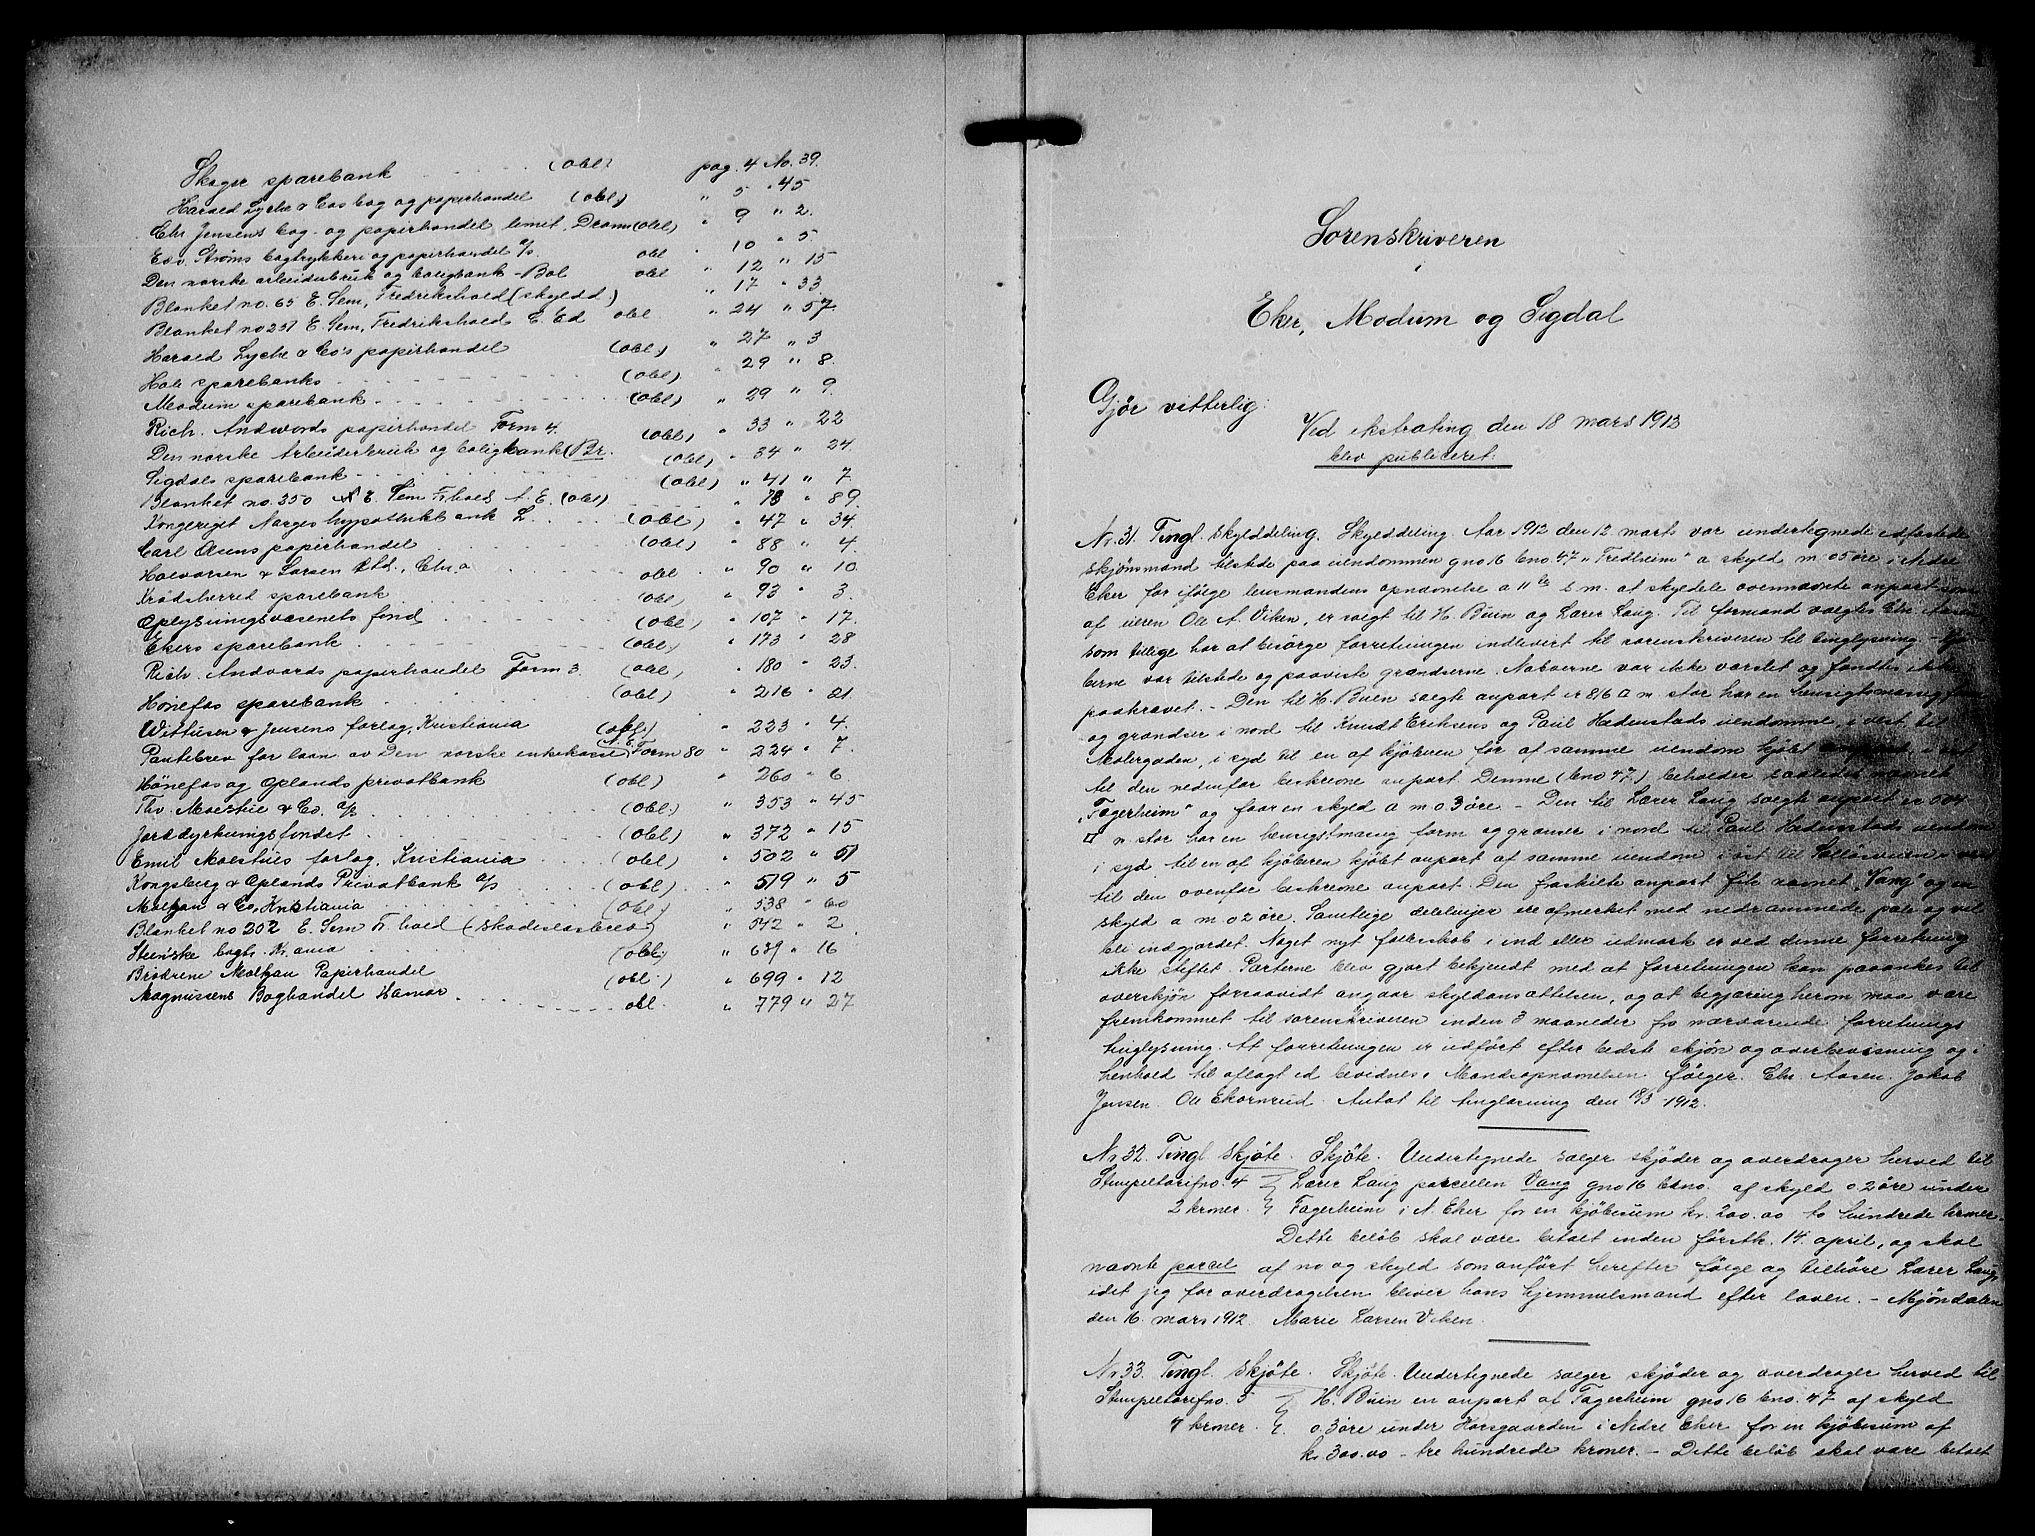 Skoger sparebank (obl) pag. 4 No. 39.
Harald Lyche & Cos bog og papirhandel (obl) " 5 " 45
Chr Jensens bog- og papirhandel limit. Dramn (obl) " 9 " 2.
Edv. Strøms bogtrykkeri og papirhandel a/s. obl " 10 " 5.
Den norske arbeiderbruk og boligbank - Bol obl " 12 " 15
Blanket no. 65 E. Sem, Fredrikshald (skyldd.) " 17 " 33
Blanket no 251 E. Sem, Fredrikshald E. Ed obl " 24 " 57
Harald Lyche & Co's papirhandel (obl) " 27 " 3
Hole sparebanks (obl) " 29 " 8.
Modum sparebank (obl) " 29 " 9.
Rich. Andvords papirhandel Form 4. (obl) " 33 " 22
Den norske Arbeiderbruk og boligbank (Br. (obl) " 34 " 24.
Sigdals sparebank (obl) " 41 " 7
Blanket no. 350 E. Sem Fr.hald A. E. (obl) " 73 " 89.
Kongeriget Norges hypothekbank L. (obl) " 47 " 34.
Carl Olsens papirhandel (obl) " 88 " 4.
Halvorsen & Larsen Ltd., Chr.a obl " 90 " 10.
Krødsherred sparebank (obl) " 93 " 3.
Oplysningsvæsenets fond (obl) " 107 " 17.
Ekers sparebank (obl) " 173 " 28
Rich. Andvords papirhandel Form 3. (obl) " 180 " 23.
Hønefos sparebank (obl) " 216 " 21.
Wittusen & Jensens forlag, Kristiania (obl) " 223 " 4.
Pantebrev for laan av Den norske enkekasse, A.E. Form 80 " 224 " 7.
Hønefos og Oplands privatbank (obl) " 260 " 6.
Thv. Moestue & Co. a/s. (obl.) " 353 " 45
Jorddyrkningsfondet (obl) " 372 " 15
Emil Moestues forlag, Kristiania (obl) " 502 " 51
Kongsberg & Oplands Privatbank a/s (obl) " 519 " 5
Maljan & Co, Kristiania (obl) " 538 " 60
Blanket no 202 E. Sem Fr.hald (skadesløsbrev) " 542 " 2.
Steen'ske bogtr. Kr.ania (obl) " 639 " 16
Brødrene Maljan Papirhandel (obl.) " 699 " 12
Magnussens Boghandel Hamar. obl. " 779 " 27
Sorenskriveren
i
Eker, Modum og Sigdal
Gjør vitterlig:
Ved ekstrating den 18 mars 1913
blev publiceret:
Nr. 31. Tingl. skylddeling. Skylddeling. Aar 1912 den 12 marts var undertegnede edfæstede
skjønsmænd tilstede paa eiendommen gno 16 bno 47 "Fredheim" a skyld m. 05 øre i Nedre
Eker for ifølge lensmandens opnævnelse a 11te d.m. at skyldele ovennævnte anpart som
af eieren Ole A. Viken, er solgt til H. Buen og Lærer Laug. Til formand valgtes Chr. Aasen
som tillige har at besørge forretningen indlevert til sorenskriveren til tinglysning. - Kjø-
berne var tilstede og paaviste grændserne. Naboerne var ikke varslet og fandtes ikke
paakrævet. - Den til H. Buen solgte anpart er 816 □ m. stor har en hensigtsmæssig form
og grændser i nord til Knudt Eriksens og Paul Hedenstads eiendomme, i vest til
Molergaden, i syd til en af kjøberen før af samme eiendom kjøbt anpart, i øst
til den nedenfor beskrevne anpart. Denne (bno 47) beholder saaledes navnet
"Fagerheim" og faar en skyld a m 0.3 øre. - Den til Lærer Laug solgte anpart er 504
□ m stor har en hensigtsmæssig form og grænser i nord til Paul Hedenstads eiendom
i syd til en af kjøberen kjøbt anpart af samme eiendom i øst til Solløsveien i vest
til den ovenfor beskrevne anpart. Den fraskilte anpart fik navnet "Vang" og en
skyld a m 0.2 øre. Samtlige delelinjer ere afmerket med nedrammede pæle og vil
bli indgjærdet. Noget nyt fælleskab i ind eller udmark er ved denne forretning
ikke stiftet. Parterne blev gjort bekjendt med at forretningen kan paaankes til
overskjøn forsaavidt angaar skyldansættelsen, og at begjæring herom maa være
fremkommet til sorenskriveren inden 3 maaneder fra nærværende forretnings
tinglysning. At forretningen er utført efter bedste skjøn og overbevisning og i
henhold til aflagt ed bevidnes. Mandsopnævnelsen følger. Chr. Aasen. Jakob
Jensen. Ole Ekornrud. Antat til tinglæsning den 18/3 1912.
Nr 32. Tingl. skjøte. Skjøte. Undertegnede sælger skjøder og overdrager herved til
Stempeltarifno. 4 Lærer Laug parcellen Vang gno 16 bno. af skyld 0.2 øre under
2 kroner. Fagerheim i N. Eker for en kjøbesum kr. 200.00 to hundrede kroner.
Dette beløb skal være betalt inden førstk. 14. april, og skal
nævnte parcel af no og skyld som anført herefter følge og tilhøre Lærer Laug,
idet jeg for overdragelsen bliver hans hjemmelsmand efter loven. - Mjøndalen
den 16. mars 1912. Marie Larsen Viken.
Nr 33. Tingl. skjøte. Skjøte. Undertegnede sælger skjøder og overdrager herved til
Stempeltarifno. 5 H. Buen en anpart af Fagerheim gno 16 bno. 47 af skyld
4 kroner. 0.3 øre under Horsgaarden i Nedre Eker for en kjøbesum af
kr. 300.00 - tre hundrede kroner. - Dette beløb skal være betalt